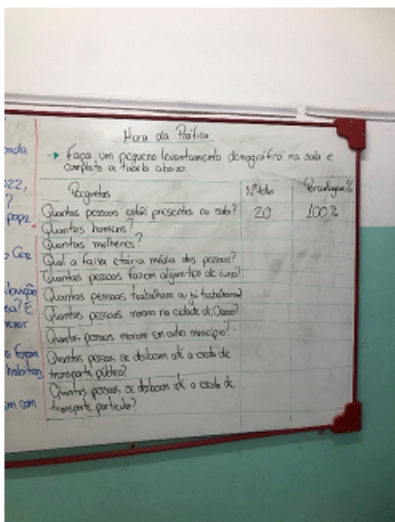 Hora da Prática
→ Faça um pequeno levantamento demográfico na sala e
complete a tabela abaixo.
Perguntas Nº total Porcentagem %
Quantas pessoas estão presentes na sala? 20 100%
Quantos homens?
Quantas mulheres?
Qual a faixa etária média das pessoas?
Quantas pessoas fazem algum tipo de curso?
Quantas pessoas trabalham ou já trabalharam?
Quantas pessoas moram na cidade de Osasco?
Quantas pessoas moram em outro município?
Quantas pessoas se deslocam até a escola de
transporte público?
Quantas pessoas se deslocam até a escola de
transporte particular?